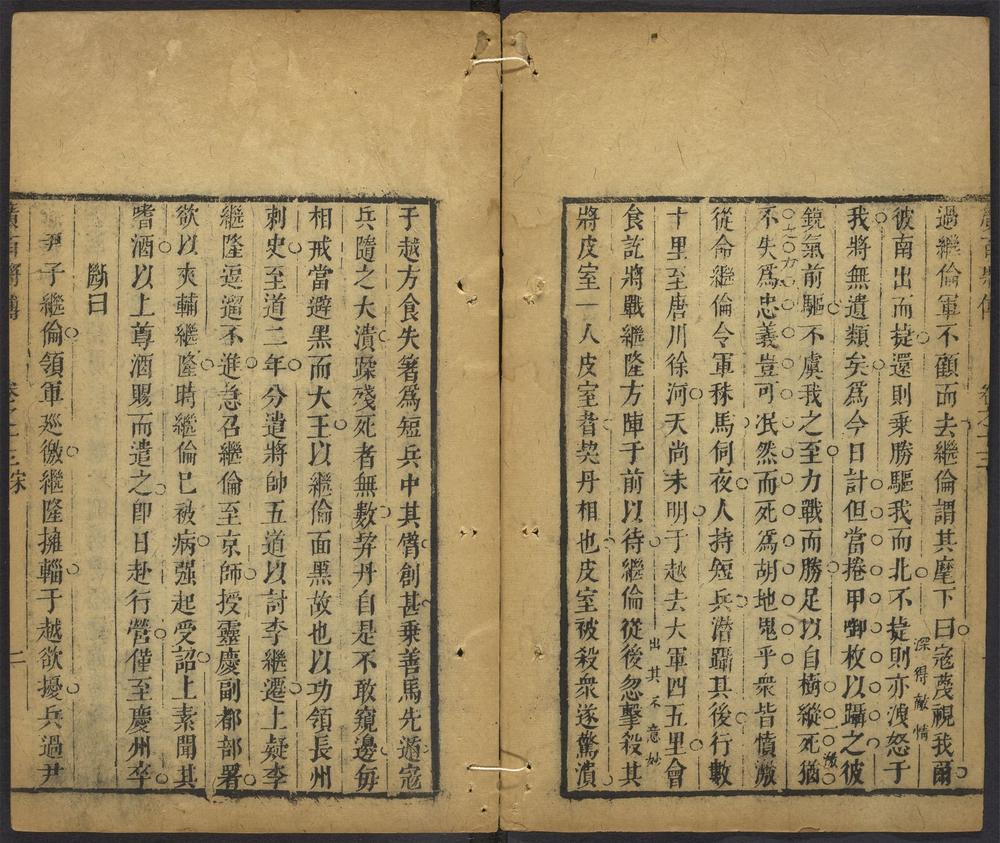 過繼倫軍不顧而去繼倫謂其麾下曰寇蔑視我爾
彼南出而捷還則乗勝驅我而北不捷則亦洩怒于
深得敵情
我將無遺類矣爲今日計但當捲甲啣枚以躡之彼
鋭氣前驅不虞我之至力戰而勝足以自樹縱死猶
激
不失爲忠義豈可泯然而死爲胡地鬼乎衆皆憤激
從命繼倫令軍秣馬伺夜人持短兵潜躡其後行數
十里至唐川徐河天尚未明于越去大軍四五里會
出其不意妙
食訖將戰繼隆方陣于前以待繼倫從後忽擊殺其
將皮室一人皮室者契丹相也皮室被殺衆遂驚潰
于越方食失箸爲短兵中其臂創甚乗善馬先遁寇
兵隨之大潰蹂殘死者無數契丹自是不敢窺邊每
相戒當避黑而大王以繼倫面黑故也以功領長州
刺史至道二年分遣將帥五道以討李繼遷上疑李
繼隆逗遛不進急召繼倫至京師授靈慶副都部署
欲以夾輔繼隆時繼倫已被病强起受詔上素聞其
嗜酒以上尊酒賜而遣之即日赴行營僅至慶州卒
斷曰
尹子繼倫領軍廵徼繼隆擁輜于越欲擾兵過尹
卷之三
二